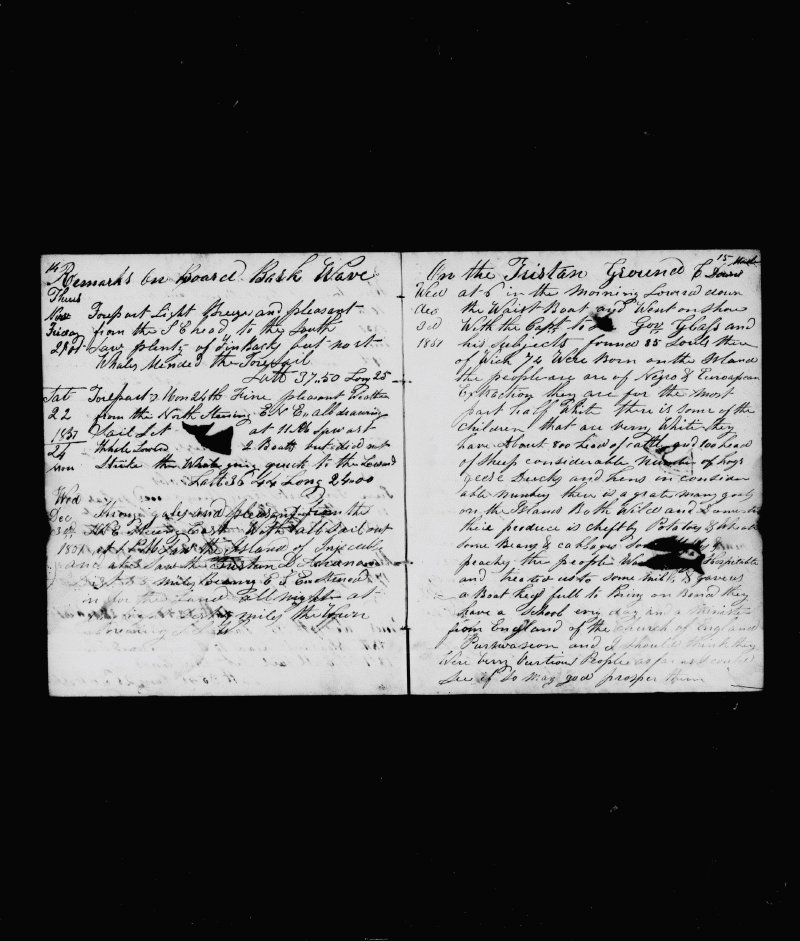 14
Remarks on Board Bark Wave
Thurs
Nov Forepart Light Breeze and pleasant
Friday from the S E head to the South
21st Saw plenty of Finbacks but no rt
Whales Mended the Foresail
Latt 37..50 Long 25
Sat Forepart & Mon 24th Fine pleasant Weather
22 from the North Steering E N E all drawing
1851 Sail Set at 11 AM Saw a rt
24 Whale Lowered 2 Boats but did not
Strike the Whale going quick to the Leward
Latt 36 Long 24=00
Wed
Dec Strong gales and pleasant from the
3d N E Steering East With all Sail out
1851 at 1 PM Saw the Island of
and also Saw the Tristan D
miles bearing E S E
in for the Land all night at
miles the Town
15
On the Tristan Ground
Wed at 6 in the Morning Lowered down
Dec the Waist Boat and Went on Shore
3d With the Capt to Gov Glass and
1851 his Subjects found 85 Souls there
of Wich 74 Were Born on the Island
the people are of Negro & Euroapean
Extraction they are for the most
part half White there is some of the
Children that are very White they
have About 800 head of cattle and 100 head
of Sheep considerable Number of hogs
geese Ducks and hens in consider
able number there is a grate many goats
on the Islands Both Wild and Domestic
their produce is cheftly Potatoes & Wheat
some Beans & cabbages
peaches the people Hospitable
and treated us to some milk & gave us
a Boat load full to Bring on Bord they
have a School every day and a Minister
from England of the Church of England
Purswasion and I should think they
Were very Vurtious People as far as I could
See if So May god prosper them